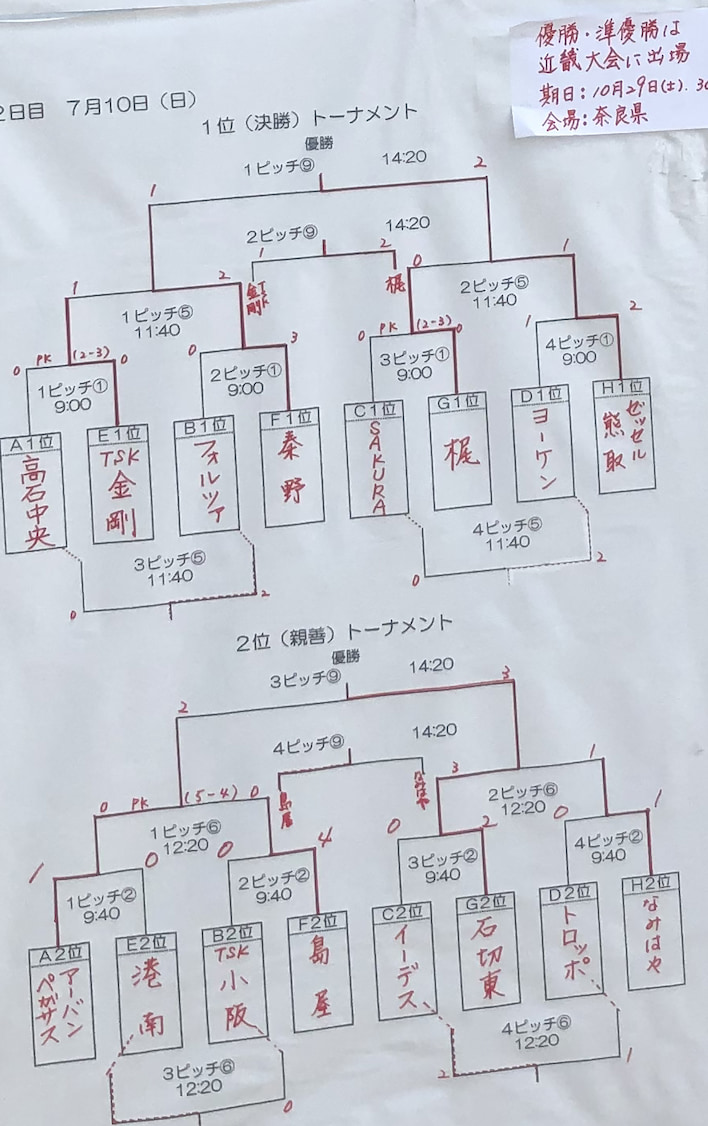 優勝・準優勝は
近畿大会に出場
期日:10月29日(土).30
会場:奈良県
2日目 7月10日(日)
1位(決勝)トーナメント
優勝
1ピッチ⑨ 14:20
1 2
2ピッチ⑨ 14:20
1 2
TSK金剛 梶
1 2 0 1
1ピッチ⑤ 2ピッチ⑤
11:40 11:40
0 PK (2-3) 0 0 3 0 PK (2-3) 0 1 2
1ピッチ① 2ピッチ① 3ピッチ① 4ピッチ①
9:00 9:00 9:00 9:00
A1位 E1位 B1位 F1位 C1位 G1位 D1位 H1位
高石中央 TSK金剛 フォルツァ 秦野 SAKURA 梶 ヨーケン ゼッセル熊取
3ピッチ⑤ 4ピッチ⑤
11:40 11:40
0 2 0 2
2位(親善)トーナメント
優勝
3ピッチ⑨ 14:20
2 3
4ピッチ⑨ 14:20
島屋 なみはや
0 PK (5-4) 0 3 1
1ピッチ⑥ 2ピッチ⑥
12:20 12:20
1 0 0 4 0 2 0 1
1ピッチ② 2ピッチ② 3ピッチ② 4ピッチ②
9:40 9:40 9:40 9:40
A2位 E2位 B2位 F2位 C2位 G2位 D2位 H2位
アーバンペガサス 港南 TSK小阪 島屋 イーデス 石切東 トロッポ なみはや
3ピッチ⑥ 4ピッチ⑥
12:20 12:20
0 2 1